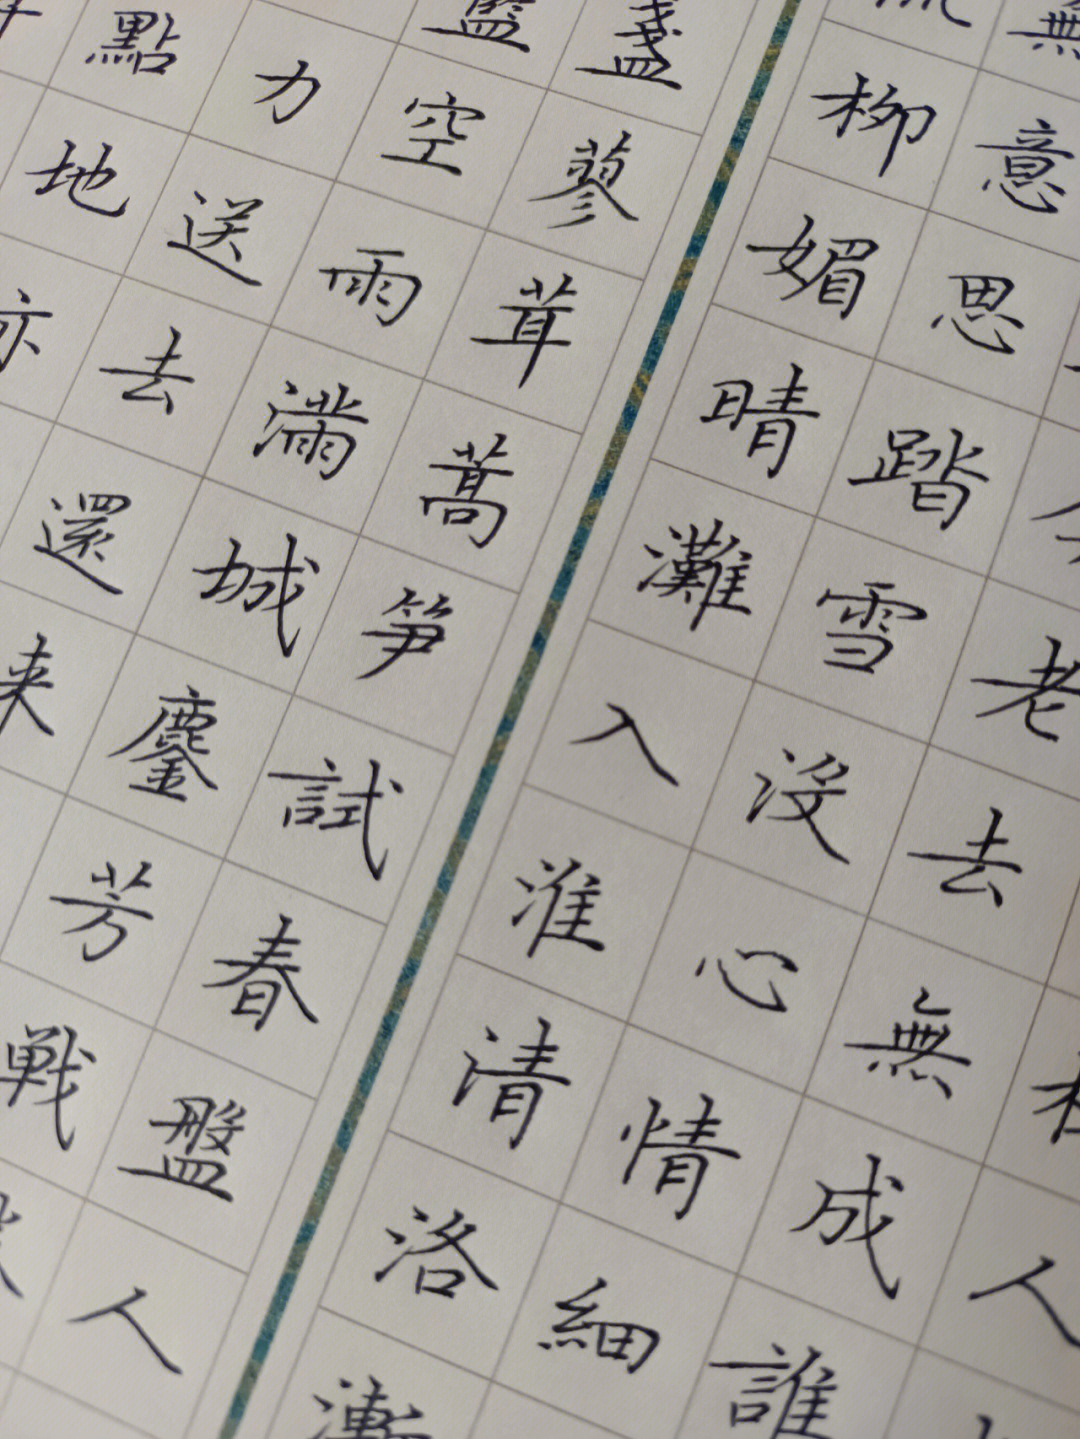 人
老去無成誰
無意思踏雪没心情細
柳媚晴灘入淮清洛漸
盞蓼茸蒿笋試春盤人
空雨滿城鏖芳戦
力送去還来
點地亦